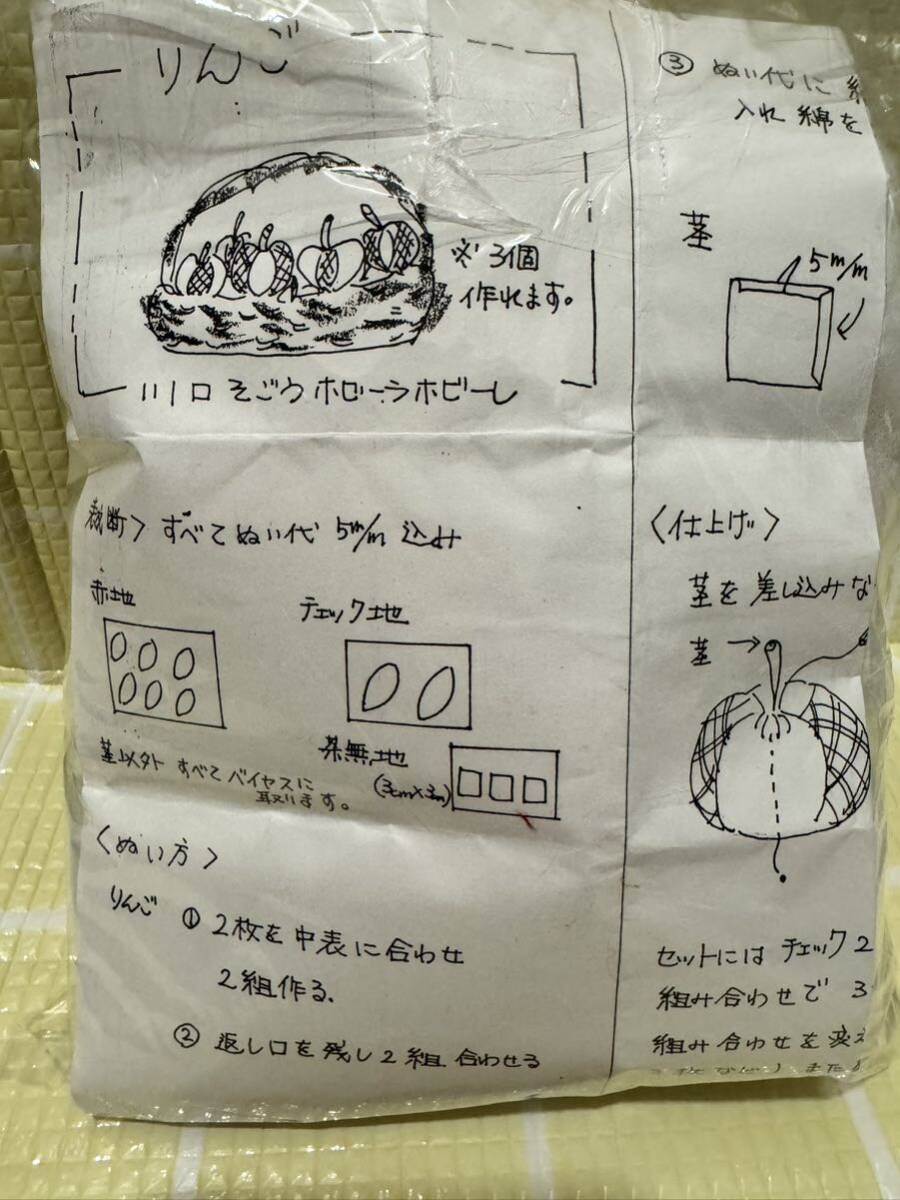 りんご
※ 3個
作れます。
川口そごう ホビーラホビーレ
裁断〉 すべてぬい代 5m/m 込み
赤地
チェック地
茎以外 すべてバイヤスに
取ります。
茶無地
(3cm×3cm)
〈ぬい方〉
りんご ① 2枚を中表に合わせ
2組作る.
② 返し口を残し2組合わせる
③ ぬい代に
入れ 綿を
茎
5m/m
〈仕上げ〉
茎を差し込みな
茎→
セットには チェック2
組み合わせで 3
組み合わせを変え